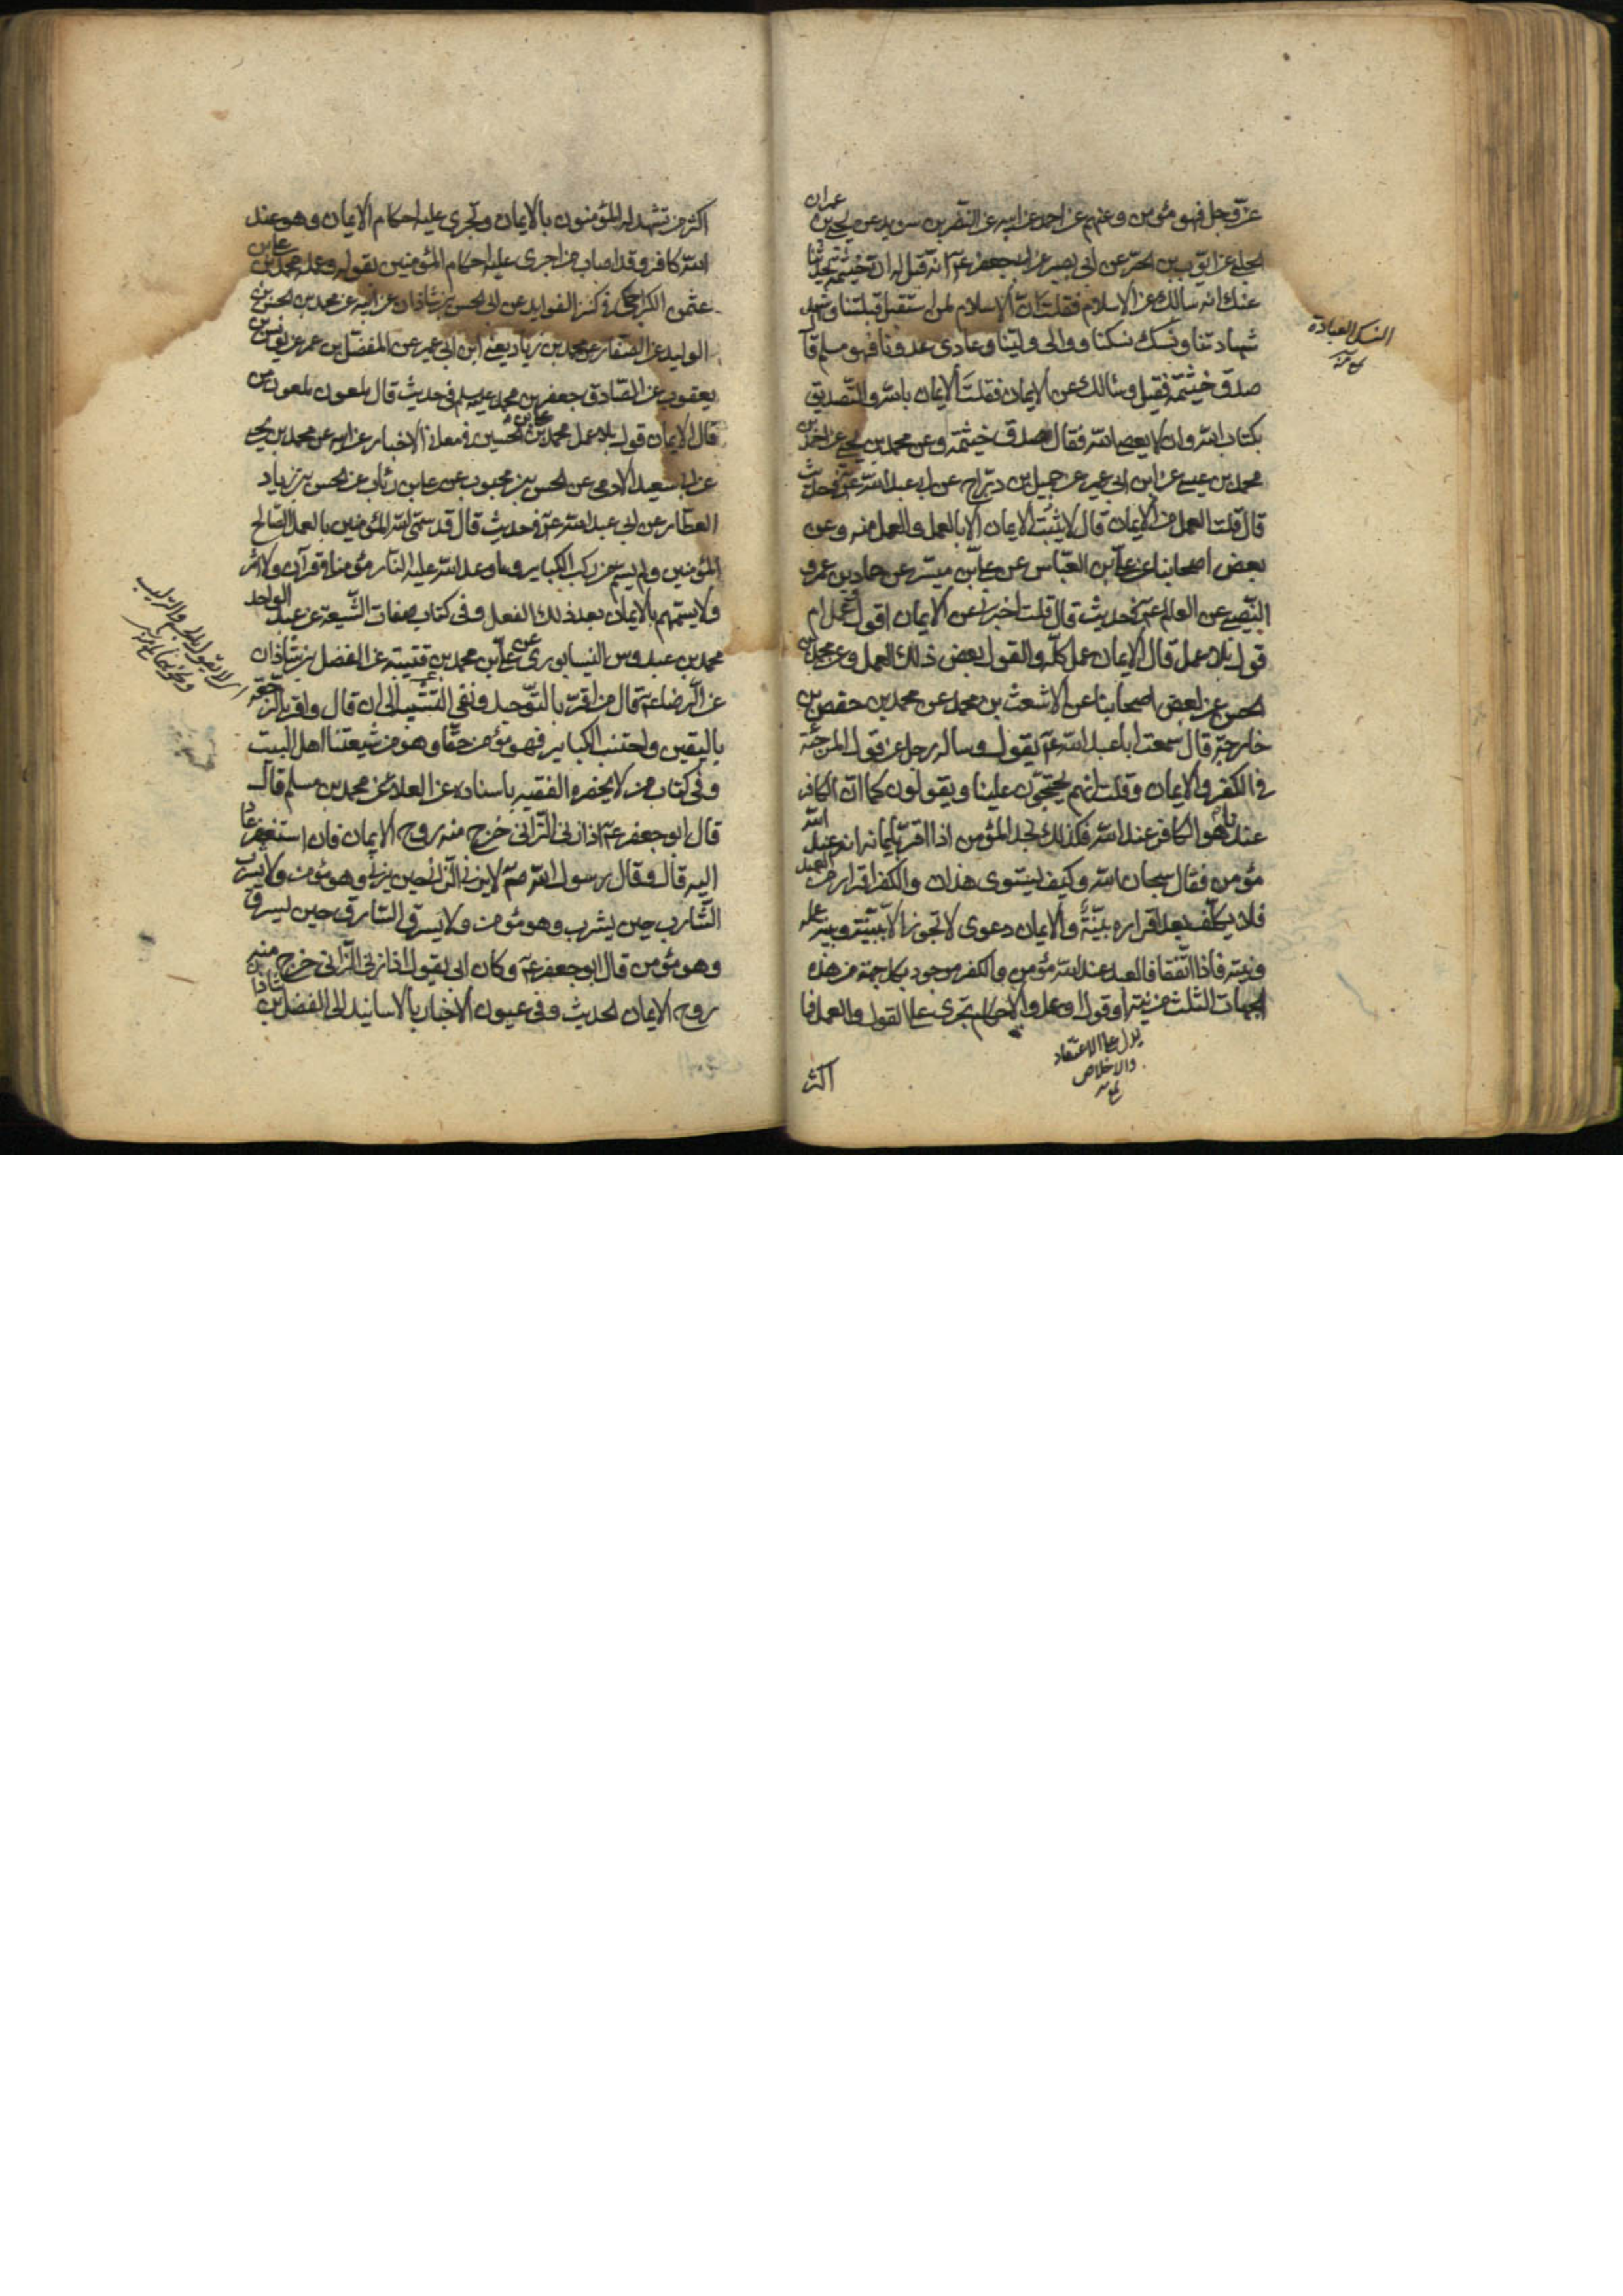 عزّ وجل فهو مؤمن وعنهم عن احمد عن ابيه عن النضر بن سويد عن يحيى بن عمران
الحلبى عن ايّوب بن الحرّ عن ابى بصير عن ابى جعفر عم انه قيل له ان خيثمة يحدثنا
عنك انه سالك عن الاسلام فقلت انّ الاسلام لمن استقبل قبلتنا وشهد
شهادتنا ونسك نسكنا ووالى وليّنا وعادى عدونا فهو مسلم قال
صدق خيثمة فقيل وسالك عن الايمان فقلت الايمان بالله والتّصديق
بكتاب الله وان لا يعصى الله فقال صدق خيثمة وعن محمد بن يحيى عن احمد بن
محمد بن عيسى عن ابن ابى عمير عن جميل بن درّاج عن ابى عبد الله عم فى حديث
قال قلت العمل من الايمان قال لا يثبت الايمان الا بالعمل والعمل منه وعن
بعض اصحابنا عن على بن العبّاس عن على بن ميسّر عن حماد بن عمرو
النّصيبى عن العالم عم فى حديث قال قلت اخبرنى عن الايمان اقول وعمل ام
قول بلا عمل قال الايمان عمل كلّه والقول بعض ذلك العمل وعن محمد بن
الحسن عن بعض اصحابنا عن الاشعث بن محمد عن محمد بن حفص بن
خارجة قال سمعت ابا عبد الله عم يقول وساله رجل عن قول المرجئة
فى الكفر والايمان وقلت انهم يحتجّون علينا ويقولون كما انّ الكافر
عندنا هو الكافر عند الله فكذلك نجد المؤمن اذا اقرّ بايمانه انه عند الله
مؤمن فقال سبحان الله وكيف يستوى هذان والكفر اقرار من العبد
فلا يكلّف بعد اقراره بيّنة والايمان دعوى لا تجوز الا ببيّنة وبينته عمله
ونيته فاذا اتّفقا فالعبد عند الله مؤمن والكفر موجود بكل جهة من هذه
الجهات الثلث من نية او قول او عمل والاحكام تجرى على القول والعمل فما
اكثر
النسك العبادة
يدل على الاعتقاد
والاخلاص
اكثر من تشهد له المؤمنون بالايمان وتجرى عليه احكام الايمان وهو عند
الله كافر وقد اصاب من اجرى عليه احكام المؤمنين بقوله وعمله محمد بن على بن
عثمن الكراجكى فى كنز الفوايد عن ابى الحسن بن شاذان عن ابيه عن محمد بن الحسن بن
الوليد عن الصّفار عن محمد بن زياد يعنى ابن ابى عمير عن المفضّل بن عمر عن يونس بن
يعقوب عن الصّادق جعفر بن محمد عليه سلم فى حديث قال ملعون ملعون من
قال الايمان قول بلا عمل محمد بن على بن الحسين فى معانى الاخبار عن ابيه عن محمد بن يحيى
عن ابى سعيد الادمى عن الحسن بن محبوب عن على بن رئاب عن الحسن بن زياد
العطّار عن ابى عبد الله عم فى حديث قال قد سمّى الله المؤمنين بالعمل الصّالح
المؤمنين ولم يسم من ركب الكباير وما وعد الله عليه النّار مؤمنا فى قرآن ولا اثر
ولا يسمّهم بالايمان بعد ذلك الفعل وفى كتاب صفات الشّيعة عن عبد الواحد
محمد بن عبدوس النيسابورى عن على بن محمد بن قتيبة عن الفضل بن شاذان
عن الرّضا عم قال من اقرّ بالتّوحيد ونفى التشبيه الى ان قال واقر بالرّجعة
باليقين واجتنب الكباير فهو مؤمن حقّا وهو من شيعتنا اهل البيت
وفى كتاب من لا يحضره الفقيه باسناده عن العلاء عن محمد بن مسلم قال
قال ابو جعفر عم اذا زنى الزّانى خرج منه روح الايمان فان استغفر عاد
اليه قال وقال رسول الله صم لا يزنى الزّانى حين يزنى وهو مؤمن ولا يشرب
الشّارب حين يشرب وهو مؤمن ولا يسرق السّارق حين يسرق
وهو مؤمن قال ابو جعفر عم وكان ابى يقول اذا زنى الزّانى خرج منه
روح الايمان الحديث وفى عيون الاخبار بالاسانيد الى الفضل بن شاذان